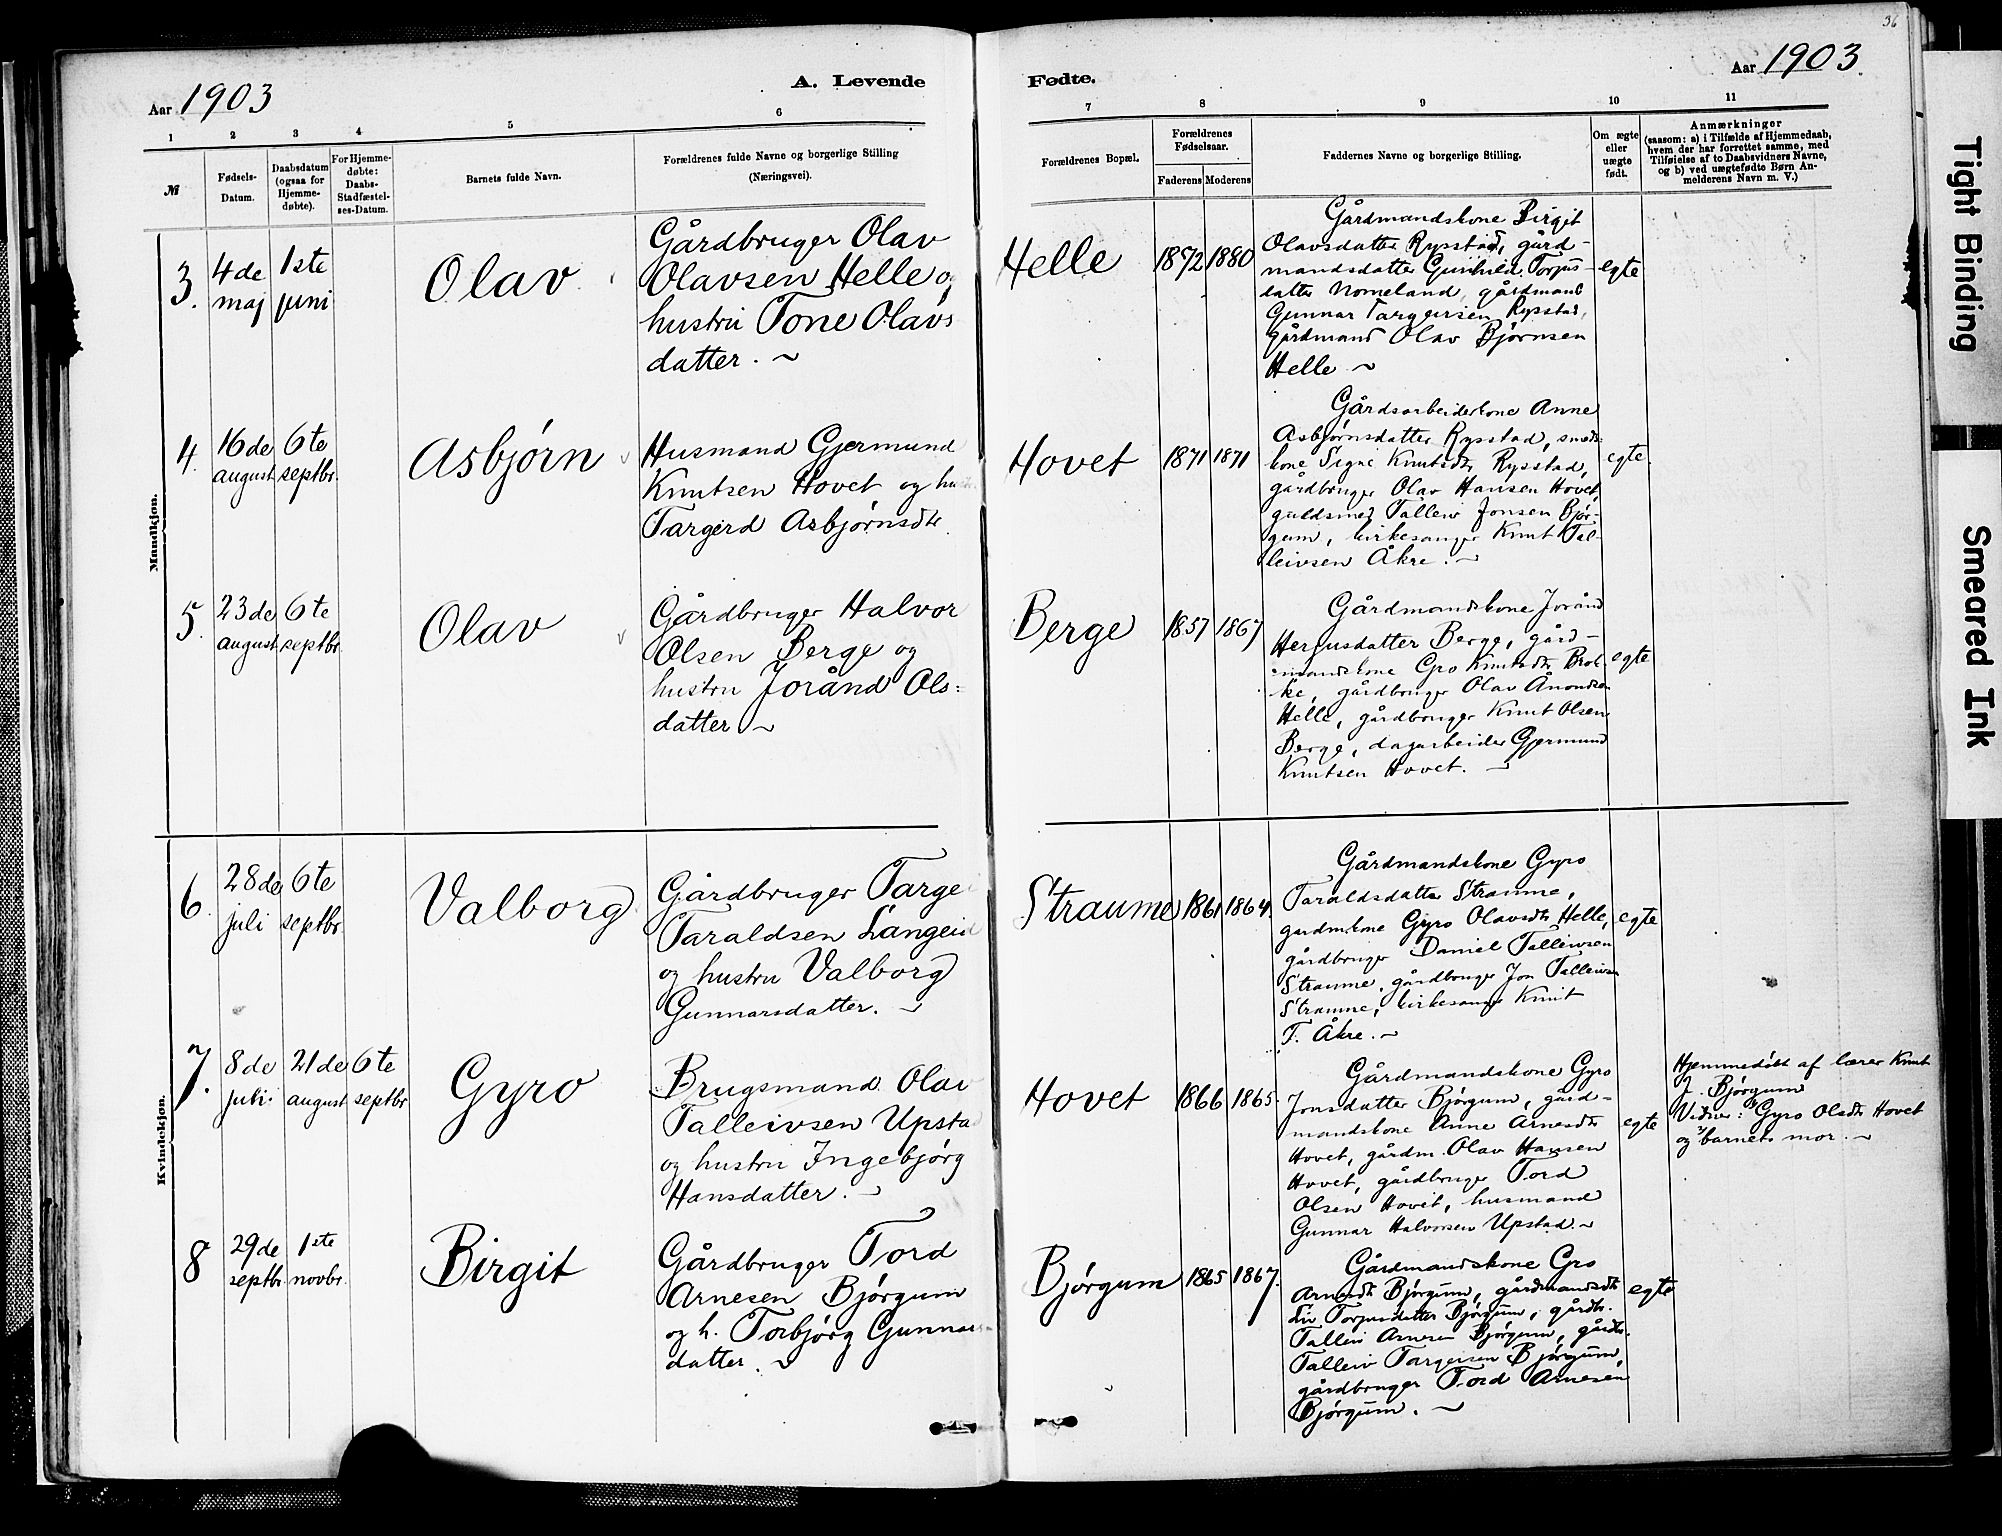 36
Aar 1903
A. Levende
Fødte.
Aar 1903.
1 2 3 4 5 6 7 8 9 10 11
№
Fødsels-
Datum.
Daabsdatum
(ogsaa for
Hjemme-
døbte).
For Hjemme-
døbte:
Daabs-
Stadfæstel-
ses-Datum.
Barnets fulde Navn.
Forældrenes fulde Navne og borgerlige Stilling
(Næringsvei).
Forældrenes Bopæl.
Forældrenes
Fødselsaar.
Faderens Moderens
Faddernes Navne og borgerlige Stilling.
Om ægte
eller
uægte
født.
Anmærkninger
(saasom: a) i Tilfælde af Hjemmedaab,
hvem der har forrettet samme, med
Tilføielse af to Daabsvidners Navne,
og b) ved uægtefødte Børn An-
melderens Navn m. V.)
Mandkjøn.
3.
4de
maj
1ste
juni
Olav
Gårdbruger Olav
Olavsen Helle og
hustru Tone Olavs
datter. ~
Helle
1872 1880
Gårdmandskone Birgit
Olavsdatter Rysstad, gård-
mandsdatter Gunhild Torjus-
datter Nomeland, gårdmand
Gunnar Targeirsen Rysstad,
gårdmand Olav Bjørnsen
Helle ~
egte
4.
16de
august
6te
septbr.
Asbjørn
Husmand Gjermund
Knutsen Hovet og
Targerd Asbjørnsdtr
Hovet
1871 1871
Gårdsarbeiderkone Anne
Asbjørnsdatter Rysstad, smeds-
kone Signe Knutsdtr Rysstad,
gårdbruger Olav Hansen Hovet,
guldsmed Talleiv Jonsen Bjør-
gum, kirkesanger Knut Tal-
leivsen Åkre. ~
egte.
5.
23de
august
6te
septbr
Olav
Gårdbruger Halvor
Olsen Berge og
hustru Jorånd Ols=
datter ~
Berge
1857 1867
Gårdmandskone Jorånd
Herjusdatter Berge, gård-
mandskone Gro Knutsdtr Brok-
ke, gårdbruger Olav Ånondsen
Helle, gårdbruger Knut Olsen
Berge, dagarbeider Gjermund
Knutsen Hovet. ~
egte
Kvindekjøn.
6.
28de
juli
6te
septbr.
Valborg
Gårdbruger Targe
Taraldsen Langeid
og hustru Valborg
Gunnarsdatter. ~
Straume
1861 1864.
Gårdmandskone Gyro
Taraldsdatter Straume,
gardm.kone Gyro Olavsdtr Helle,
gårdbruger Daniel Talleivsen
Straume, gårdbruger Jon Talleivsen
Straume, kirkesanger Knut
T. Åkre. ~
egte
7.
8de
juli.
21de
august
6te
septbr
Gyro
Brugsmand Olav
Talleivsen Upstad
og hustru Ingebjørg
Hansdatter. ~
Hovet
1866 1865.
Gårdmandskone Gyro
Jonsdatter Bjørgum, gård-
mandskone Anne Arnesdtr
Hovet, gårdm. Olav Hansen
Hovet, gårdbruger Tord
Olsen Hovet, husmand
Gunnar Halvorsen Upstad. ~
egte
Hjemmedøbt af lærer Knut
J. Bjørgum
Vidner: Gyro Olsdtr Hovet
og barnets mor. ~
8
29de
septbr.
1ste
novbr.
Birgit
Gårdbruger Tord
Arnesen Bjørgum
og h. Torbjørg Gunnars-
datter. ~
Bjørgum
1865 1867.
Gårdmandskone Gro
Arnesdtr Bjørgum, gårdmandsdtr
Liv Torjusdatter Bjørgum, gårdb.
Talleiv Arnesen Bjørgum, gårdb.
Talleiv Targeirsen Bjørgum,
gårdbruger Tord Arnesen
Bjørgum. ~
egte
Tight Binding
Smeared Ink